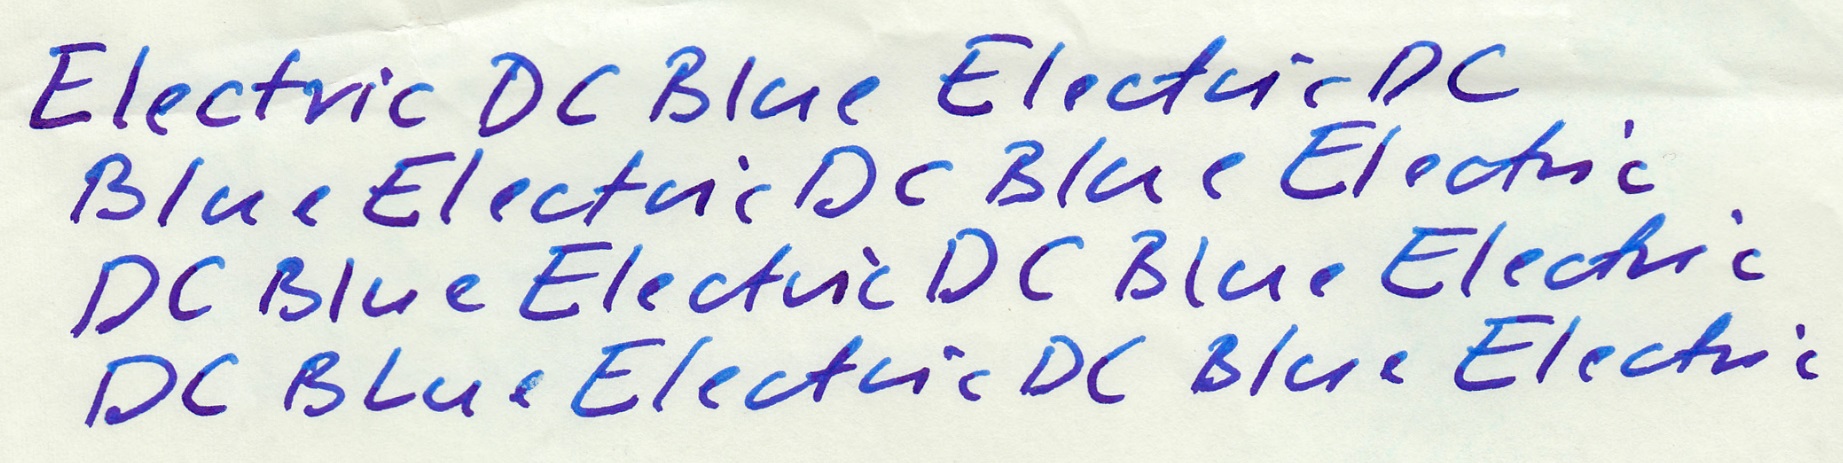 Electric DC Blue Electric DC
Blue Electric DC Blue Electric
DC Blue Electric DC Blue Electric
DC Blue Electric DC Blue Electric